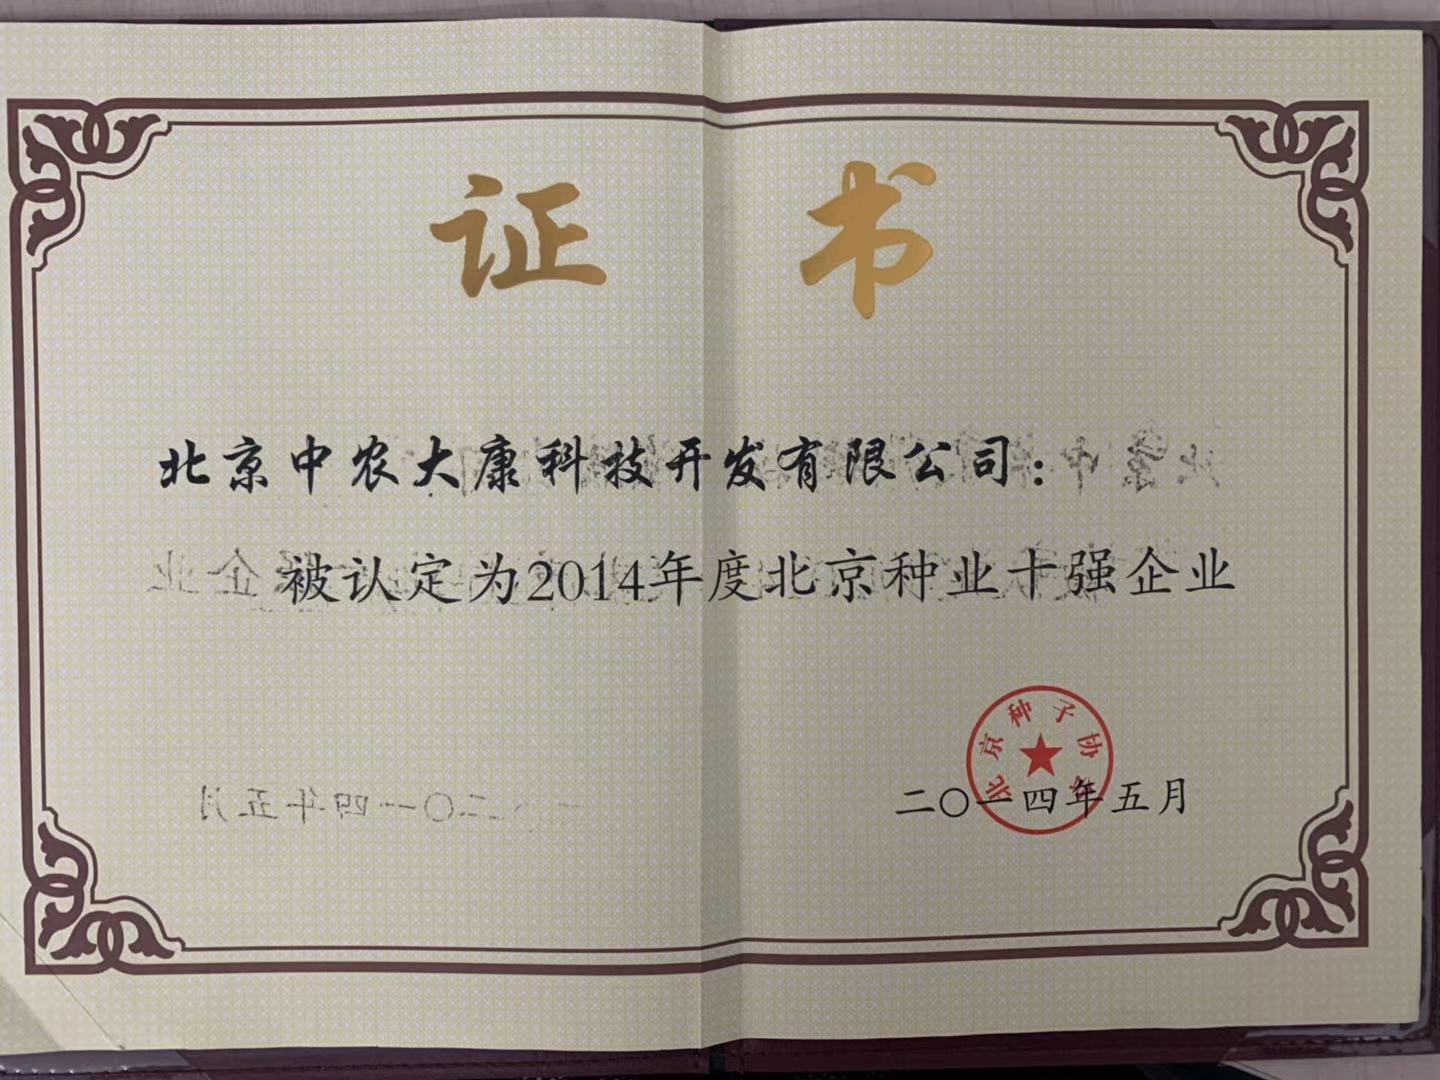 证书
北京中农大康科技开发有限公司：
被认定为2014年度北京种业十强企业
北京种子协会
二〇一四年五月